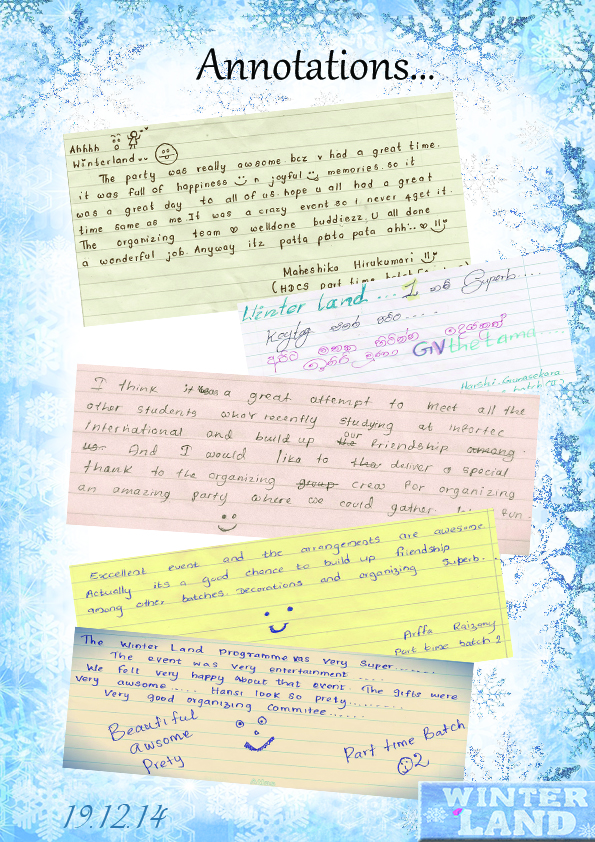 Annotations...
Ahhhh
Winterland..
The party was really awsome bcz v had a great time.
it was full of happiness n joyful memories. so it
was a great day to all of us. hope u all had a great
time same as me. It was a crazy event so i never 4get it.
The organizing team welldone buddiezz. U all done
a wonderful job. Anyway itz patta pata pata ahh..
Maheshika Hirukumari
(HDCS part time batch
Winter land ... 1 නම් Superb....
අපිට
GV the tama....
Harshi Gunasekara
batch
I think it was a great attempt to meet all the
other students who'r recently studying at infortec
International and build up our the friendship among
us. And I would like to the deliver a special
thank to the organizing group crew for organizing
an amazing party where we could gather. fun.
Excellent event and the arrangements are awesome
Actually its a good chance to build up friendship
among other batches. Decorations and organizing superb.
Arffa Raizany
Part time batch 2
The Winter Land Programme was very Super.......
The event was very entertainment ....
We felt very happy about that event. The gifts were
very awsome..... Hansi look so prety.........
Very good organizing Commitee......
Beautiful
awsome
Prety
Part time Batch
02
19.12.14
WINTER
LAND